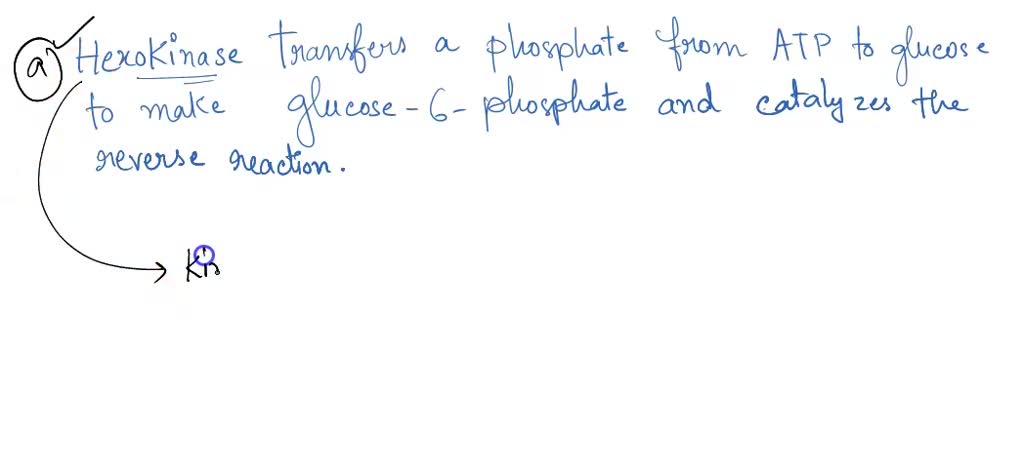 a) Hexokinase transfers a phosphate from ATP to glucose
to make glucose-6-phosphate and catalyzes the
reverse reaction.
Kin